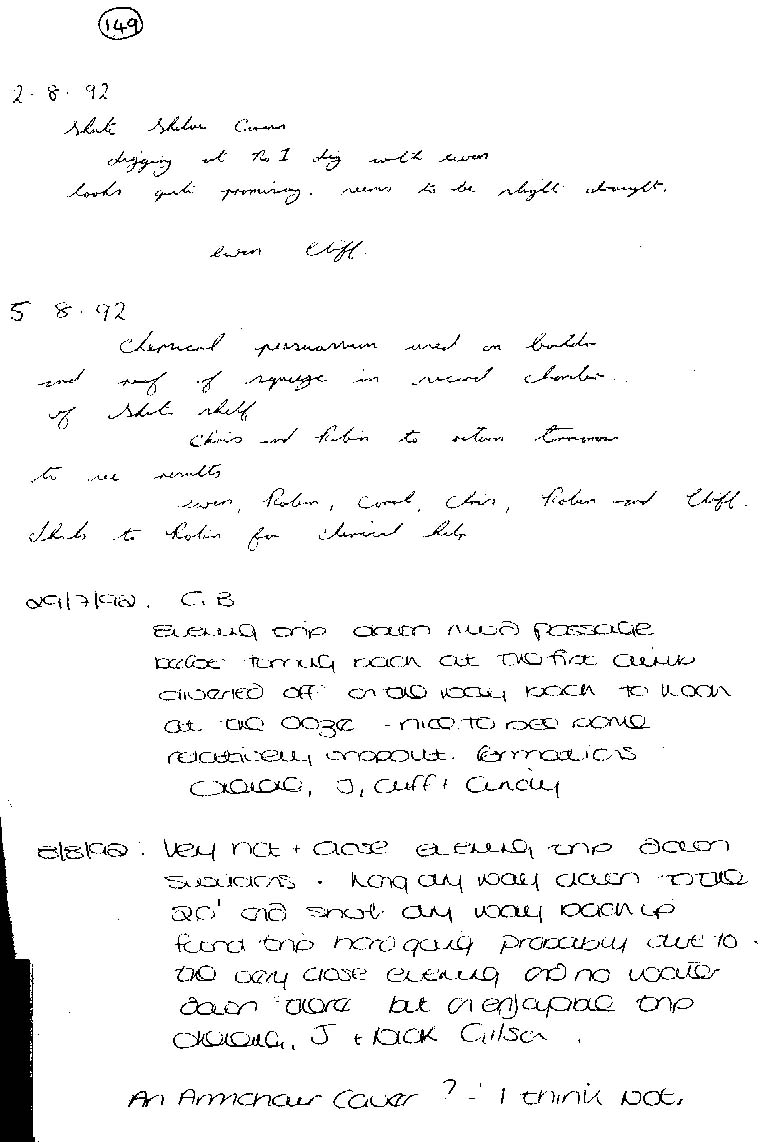 149
2·8·92
digging at No 1 dig with ewen
looks quite promising. seems to be slight draught.
ewen Cliff.
5 8·92
Chemical persuasion used on boulder
and roof of squeeze in second chamber.
of shelf
Chris and Robin to return tomorrow
to see results
ewen, Robin, Carol, Chris, Robin and Cliff.
Thanks to Robin for chemical help
29/7/92. G.B
Evening trip down mud passage
before turning back at the first
diverted off on the way back to look
at the ooze - nice to see some
relatively formations
J, Cliff + Andy
8/8/92: Very hot + close evening trip down
Swildons. Long dry way down to the
20' and short dry way back up
found trip hard going probably due to
the very close evening and no water
down there but an enjoyable trip
J + Gilson.
An Armchair Caver? - I think Not.